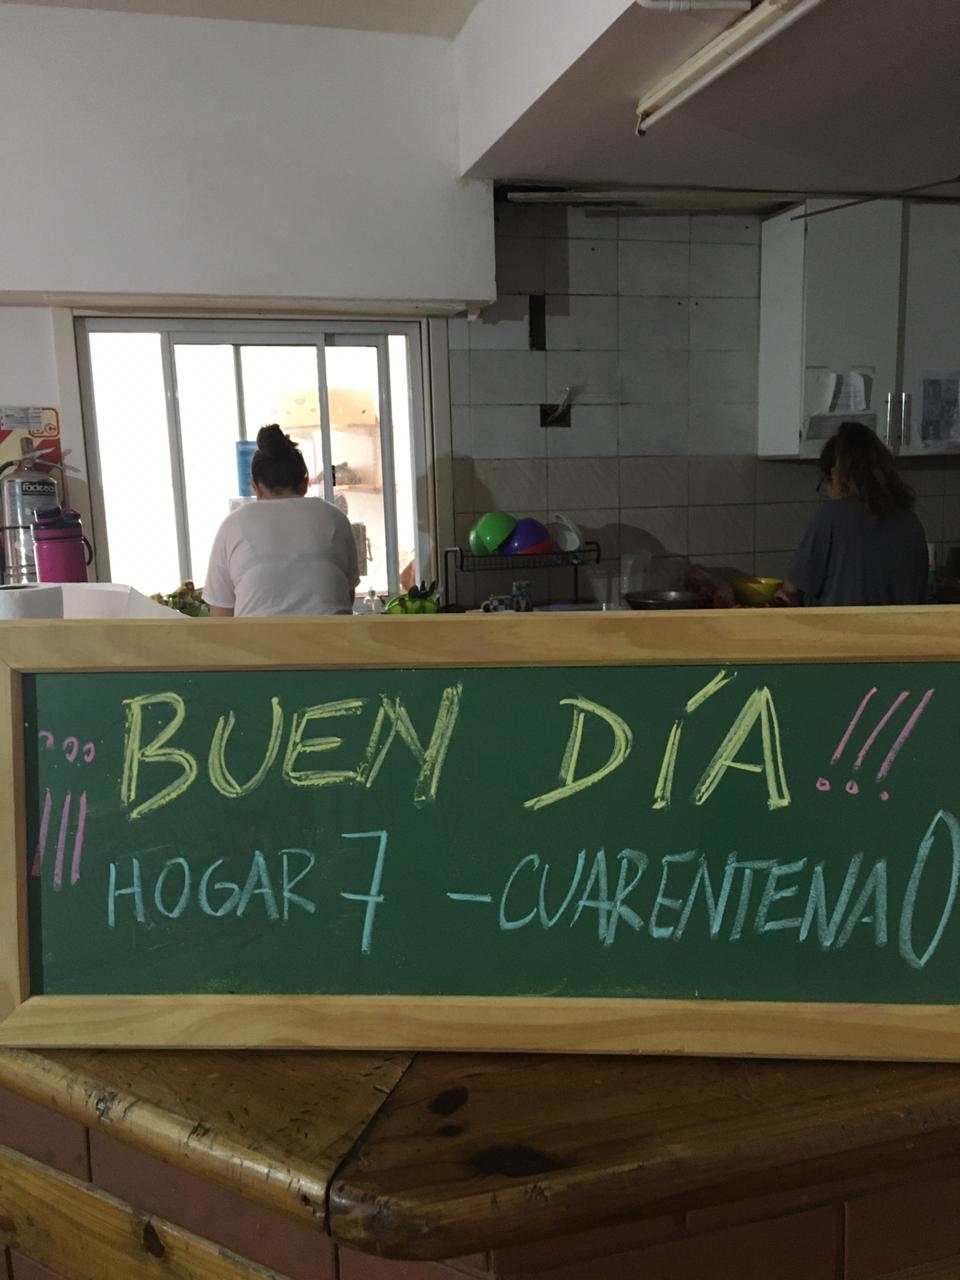 ¡¡¡BUEN DÍA!!!
HOGAR 7 - CUARENTENA 0